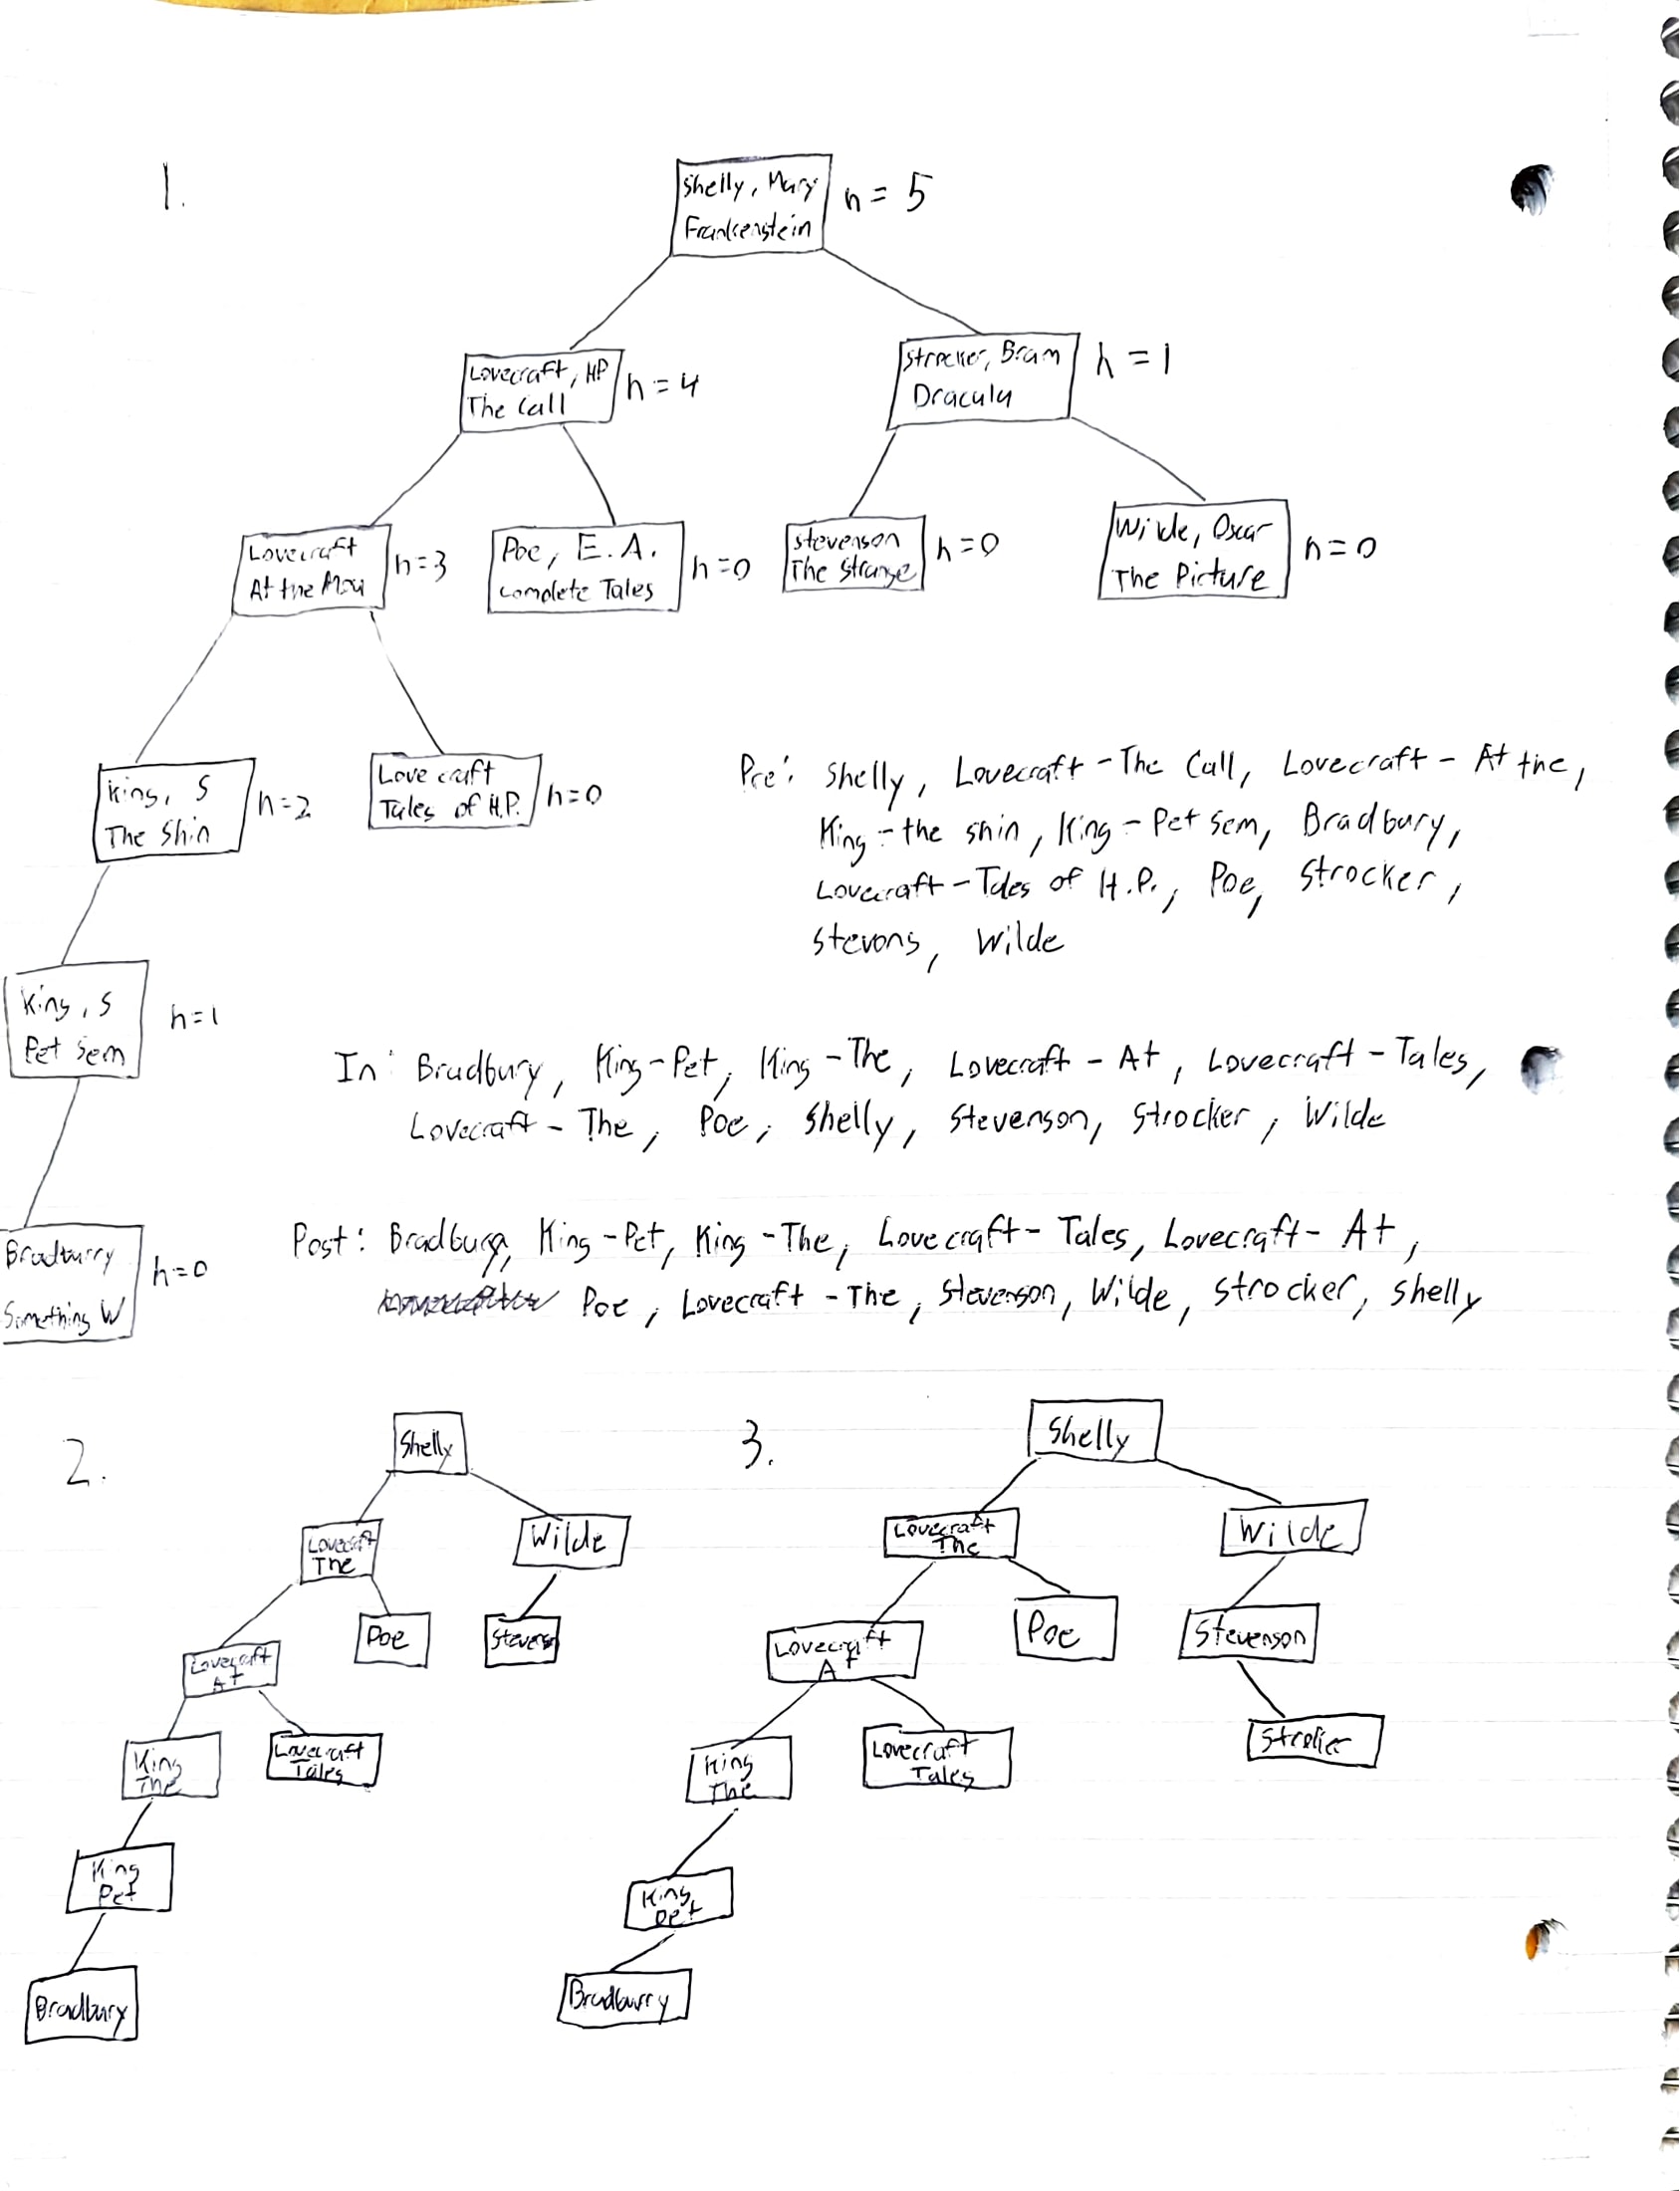 1.
Shelly, Mary
Frankenstein
h = 5
Lovecraft, HP
The Call
h = 4
Strocker, Bram
Dracula
h = 1
Lovecraft
At the Mou
h=3
Poe, E.A.
Complete Tales
h=0
Stevenson
The Strange
h=0
Wilde, Oscar
The Picture
h=0
King, S
The Shin
h=2
Lovecraft
Tales of H.P.
h=0
Pre: Shelly, Lovecraft - The Call, Lovecraft - At the,
King - the shin, King - Pet Sem, Bradbury,
Lovecraft - Tales of H.P., Poe, Strocker,
Stevons, Wilde
King, S
Pet Sem
h=1
In: Bradbury, King-Pet, King-The, Lovecraft - At, Lovecraft - Tales,
Lovecraft - The, Poe, Shelly, Stevenson, Strocker, Wilde
Bradburry
Something W
h=0
Post: Bradbury, King-Pet, King-The, Lovecraft- Tales, Lovecraft- At,
Poe, Lovecraft - The, Stevenson, Wilde, Strocker, Shelly
2.
Shelly
Lovecraft
The
Wilde
Lovecraft
At
Poe
Stevenson
King
The
Lovecraft
Tales
King
Pet
Bradbury
3.
Shelly
Lovecraft
The
Wilde
Lovecraft
At
Poe
Stevenson
King
The
Lovecraft
Tales
King
Pet
Bradburry